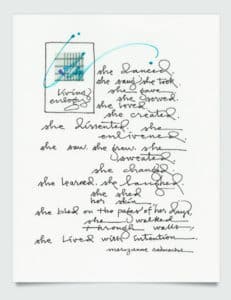 living
eulogy
she danced.
she sang. she took.
she gave.
she served.
she loved.
she created.
she dissented. she
enlivened.
she saw. she grew. she
sweated.
she changed.
she learned. she laughed.
she shed
her skin.
she bled on the pages of her days,
she walked
through walls,
she lived with intention.
maryanne radmacher